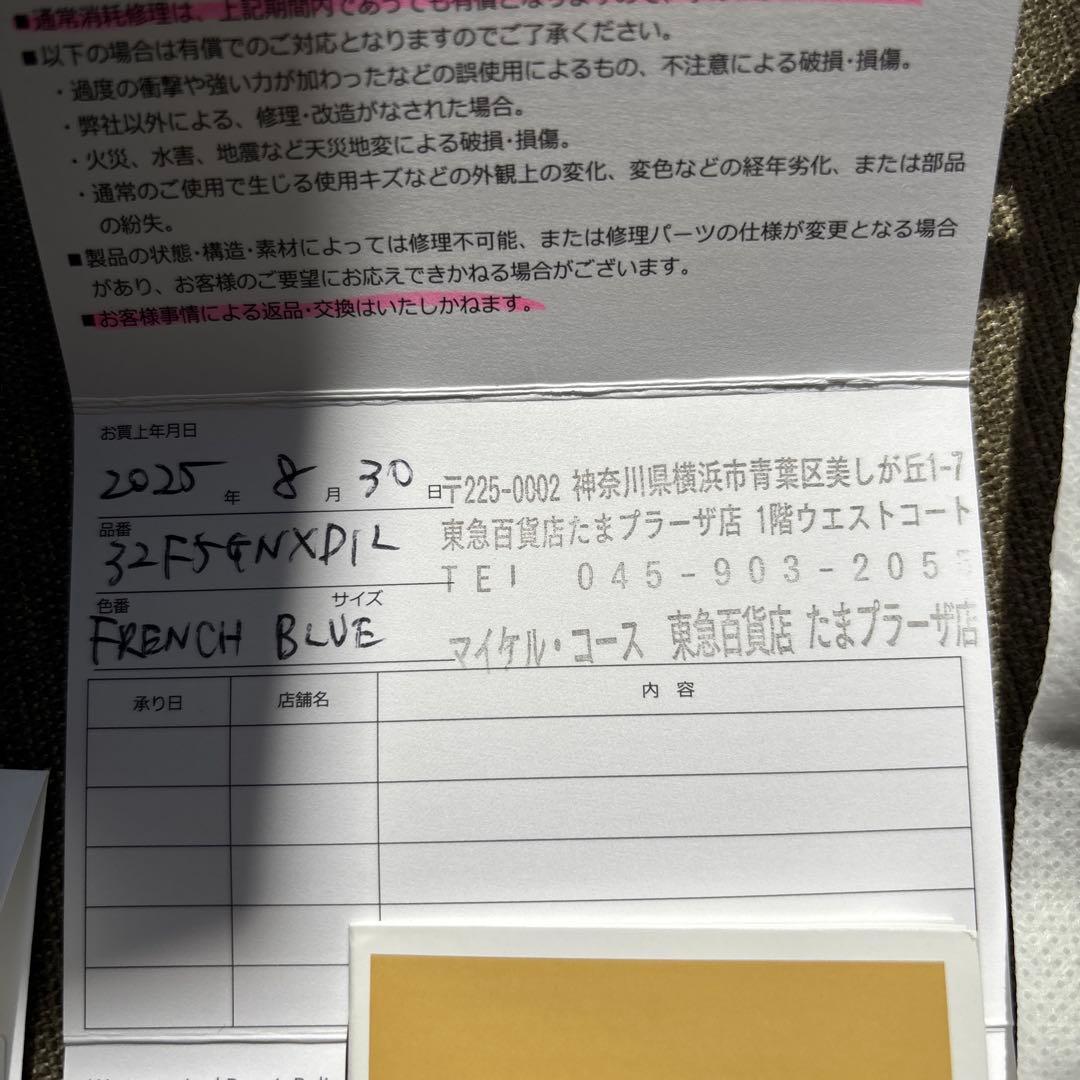 ■通常消耗修理は、上記期間内であっても有償となりますので、
■以下の場合は有償でのご対応となりますのでご了承ください。
・過度の衝撃や強い力が加わったなどの誤使用によるもの、不注意による破損・損傷。
・弊社以外による、修理・改造がなされた場合。
・火災、水害、地震など天災地変による破損・損傷。
・通常のご使用で生じる使用キズなどの外観上の変化、変色などの経年劣化、または部品
の紛失。
■製品の状態・構造・素材によっては修理不可能、または修理パーツの仕様が変更となる場合
があり、お客様のご要望にお応えできかねる場合がございます。
■お客様事情による返品・交換はいたしかねます。
お買上年月日
2025 年 8 月 30 日
〒225-0002 神奈川県横浜市青葉区美しが丘1-7
品番
32F5GNXD1L
東急百貨店たまプラーザ店 1階ウエストコート
TEL 045-903-205
色番 サイズ
FRENCH BLUE
マイケル・コース 東急百貨店 たまプラーザ店
承り日 店舗名 内容